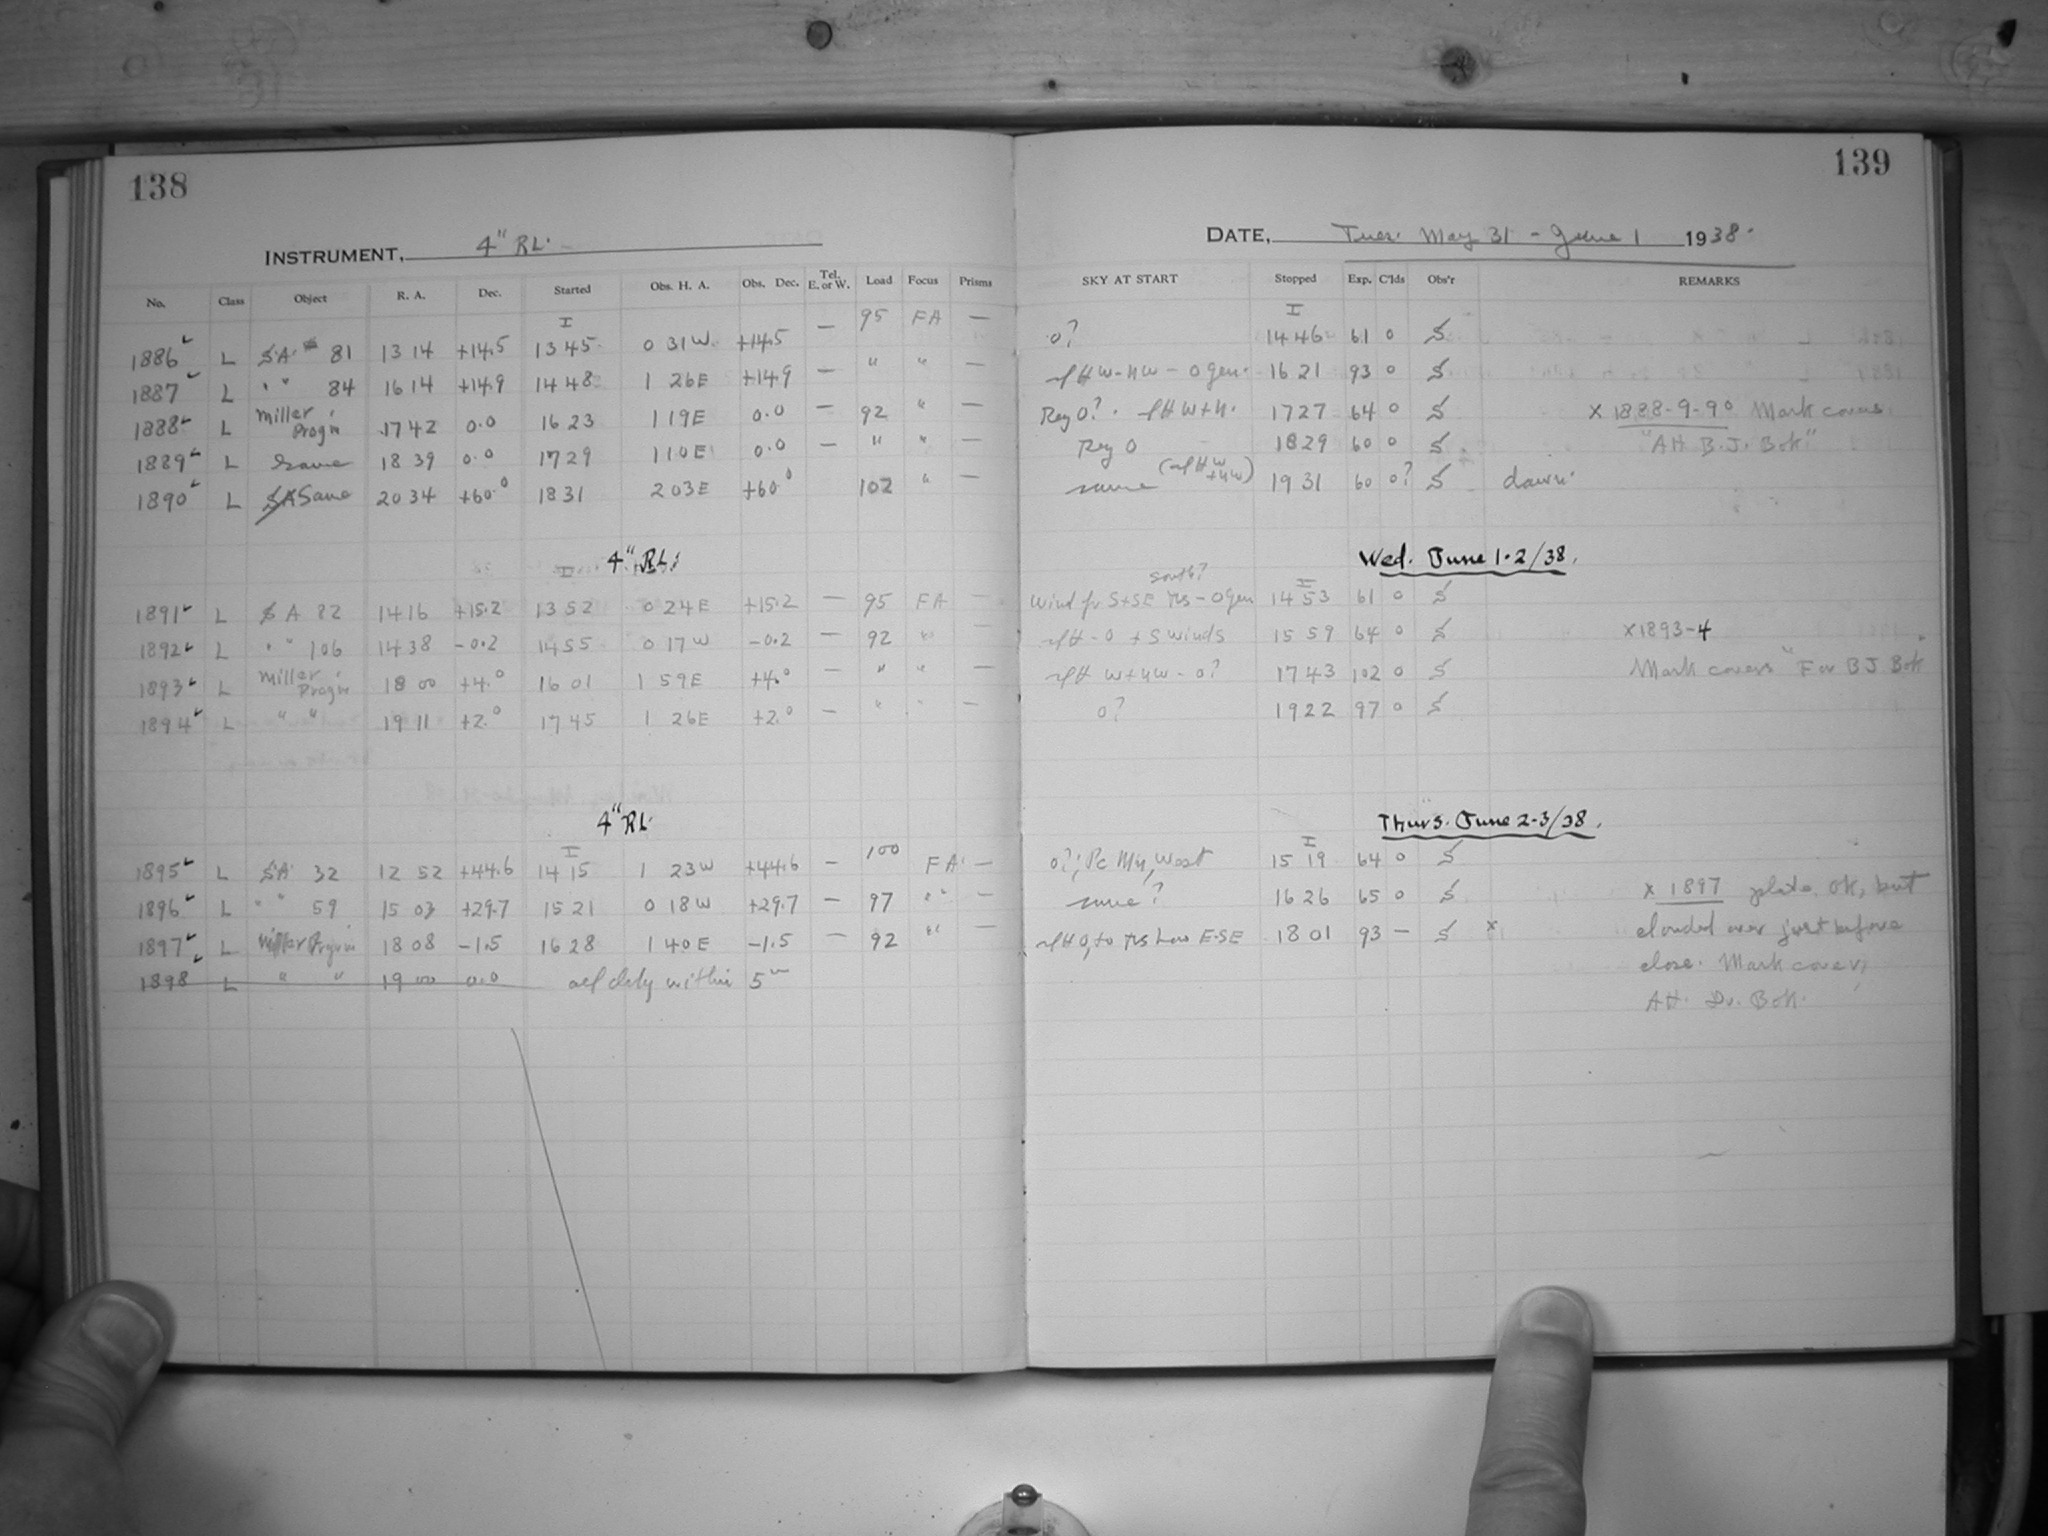 138
INSTRUMENT, 4" RL.
No. Class Object R. A. Dec. Started Obs. H. A. Obs. Dec. Tel. E. or W. Load Focus Prisms
I
1886 L S.A. 81 13 14 +14.5 13 45 0 31W +14.5 — 95 FA —
1887 L " " 84 16 14 +14.9 14 48 1 26E +14.9 — " " —
1888 L Miller Progm 17 42 0.0 16 23 1 19E 0.0 — 92 " —
1889 L Same 18 39 0.0 17 29 1 10E 0.0 — " " —
1890 L SA Same 20 34 +60.0 18 31 2 03E +60.0 102 " —
4" RL.
I
1891 L S A 82 14 16 +15.2 13 52 0 24E +15.2 — 95 FA —
1892 L " " 106 14 38 -0.2 14 55 0 17W -0.2 — 92 "
1893 L Miller Progm 18 00 +4.0 16 01 1 59E +4.0 — " " —
1894 L " " 19 11 +2.0 17 45 1 26E +2.0 — " " —
4" RL.
I
1895 L SA 32 12 52 +44.6 14 15 1 23W +44.6 — 100 FA —
1896 L " " 59 15 03 +29.7 15 21 0 18W +29.7 — 97 " —
1897 L Miller Progm 18 08 -1.5 16 28 1 40E -1.5 — 92 " —
1898 L " " 19 00 0.0 within 5m
139
DATE, Tues. May 31 - June 1 1938.
SKY AT START Stopped Exp. C'lds Obs'r REMARKS
I
0? 14 46 61 0 S
W-NW - 0 gen. 16 21 93 0 S
Reg 0? W+N. 17 27 64 0 S x 1888-9-90 Mark covers
Reg 0 18 29 60 0 S "Att B.J. Bok"
same (W+NW) 19 31 60 0? S dawn.
Wed. June 1-2/38.
south? I
Wind fr S+SE - 0 gen 14 53 61 0 S
- 0 + S winds 15 59 64 0 S x1893-4
W+NW - 0? 17 43 102 0 S Mark covers "For BJ Bok
0? 19 22 97 0 S
Thurs. June 2-3/38.
I
0?; West 15 19 64 0 S
same? 16 26 65 0 S x 1897 plate OK, but
Low E-SE 18 01 93 — S x clouded over just before
close. Mark cover,
Att. Dr. Bok.